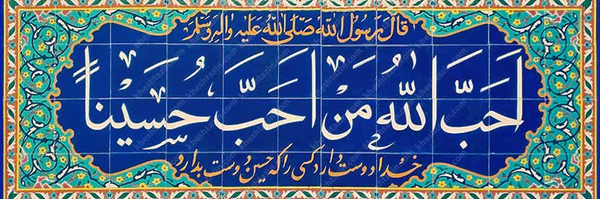 قال رسول الله صلى الله عليه وآله وسلم
احَبَّ اللهُ مَن احَبَّ حُسَيناً
خدا دوست دارد کسی را که حسین دوست بدارد